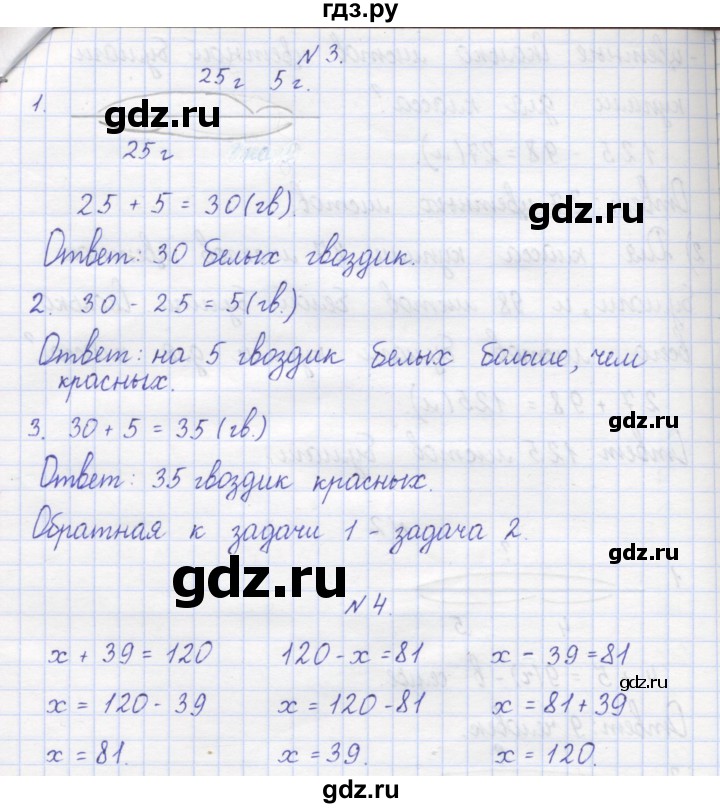 гдз.ру
N 3.
25 г 5 г.
1.
gdz.ru
25 г
25 + 5 = 30 (гв).
gdz.ru
Ответ: 30 белых гвоздик.
2. 30 - 25 = 5 (гв.)
Ответ: на 5 гвоздик белых больше, чем
красных.
gdz.ru
3. 30 + 5 = 35 (гв.)
Ответ: 35 гвоздик красных.
Обратная к задачи 1 - задача 2.
gdz.ru
gdz.ru
N 4.
x + 39 = 120 120 - x = 81 x - 39 = 81
gdz.ru
x = 120 - 39 x = 120 - 81 x = 81 + 39
x = 81. x = 39. x = 120.
gdz.ru